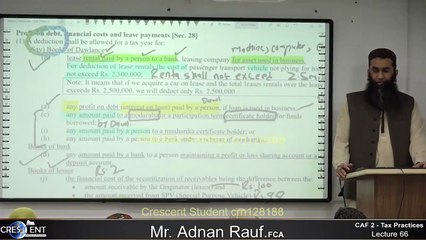 Profit on debt, financial costs and lease payments [Sec. 28]
(1) A deduction shall be allowed for a tax year for:
Book of Dawlance
machine, computer,
lease rental paid by a person to a bank, leasing company for asset used in business.
For deduction of lease rentals the cost of passenger transport vehicle not plying for
not exceed Rs. 2,500,000. Rental shall not exceed 2.5m
Note: It means that if we acquire a car on lease and the total lease rentals over the
exceeds Rs. 2,500,000, we will deduct only Rs. 2,500,000
any profit on debt (interest on loan) paid by a person if loan is used in business;
(e) any amount paid to a modaraba or a participation term certificate holder for funds
borrowed; by
any amount paid by a person to a musharika certificate holder; or
any amount paid by a bank to a person maintaining a profit or loss sharing account or a
deposit account.
Books of lessor
Rs 2
(j) the financial cost of the securitization of receivables being the difference between the
amount received by the Originator (lessor) and Rs 100
the amount received from SPV (Special Purpose Vehicle)
Crescent Student crn128188
CRESCENT
Mr. Adnan Rauf.FCA
CAF 2 - Tax Practices
Lecture 66